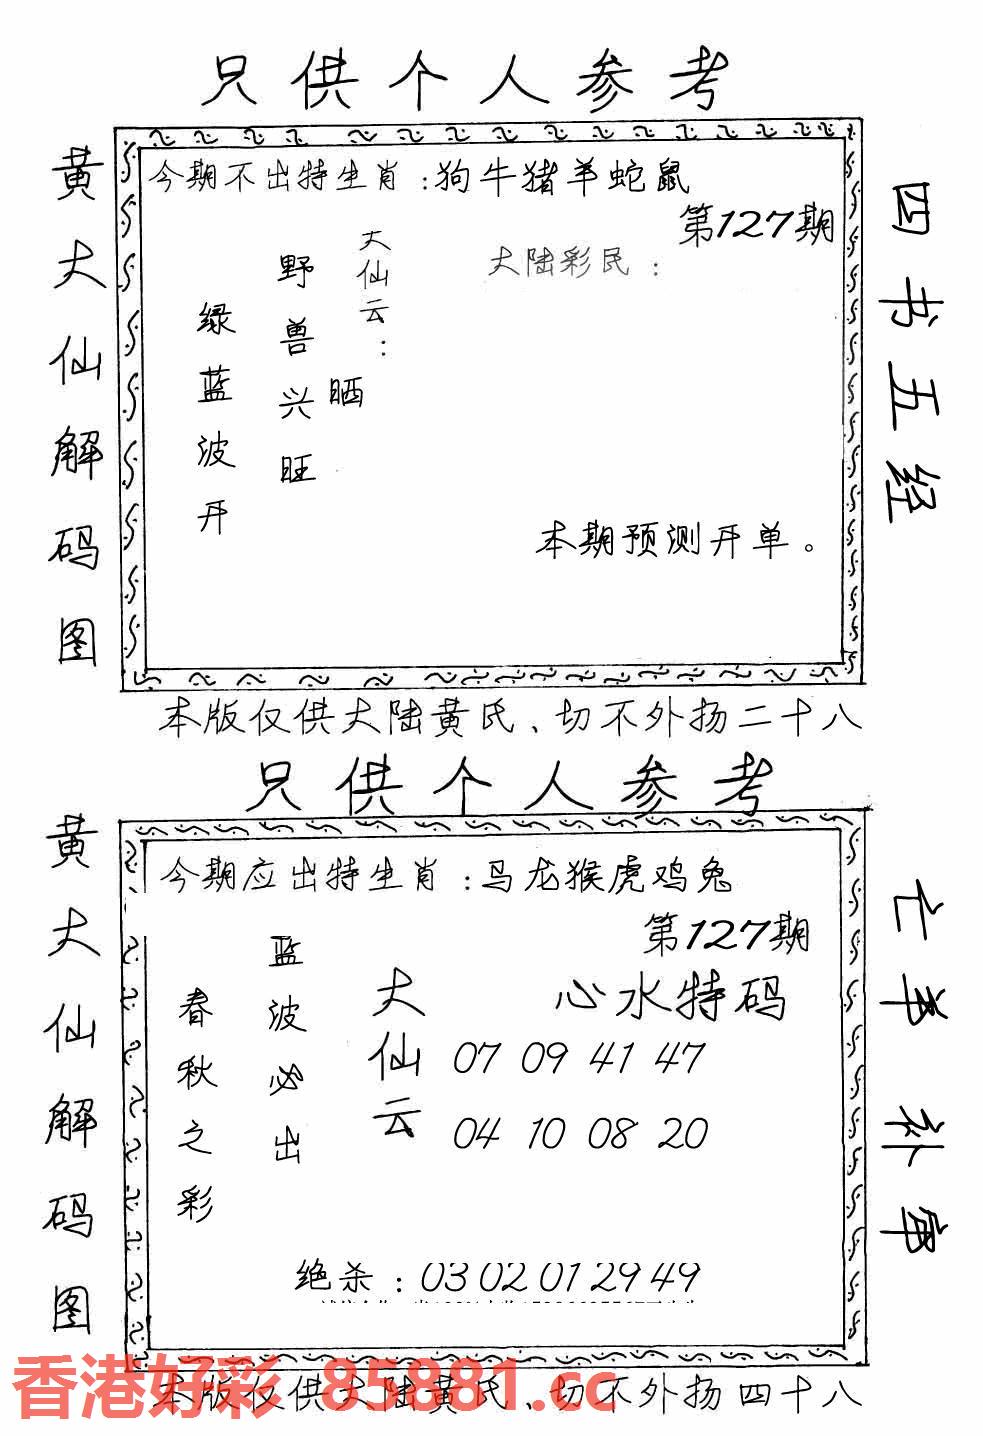 只供个人参考
黄大仙解码图
今期不出特生肖:狗牛猪羊蛇鼠
第127期
大陆彩民:
大仙云:
晒
野兽兴旺
绿蓝波开
本期预测开单。
四书五经
本版仅供大陆黄氏、切不外扬二十八
只供个人参考
黄大仙解码图
今期应出特生肖:马龙猴虎鸡兔
第127期
心水特码
大仙云
07 09 41 47
04 10 08 20
蓝波必出
春秋之彩
绝杀:03 02 01 29 49
亡羊补牢
香港好彩 85881.cc
本版仅供大陆黄氏、切不外扬四十八